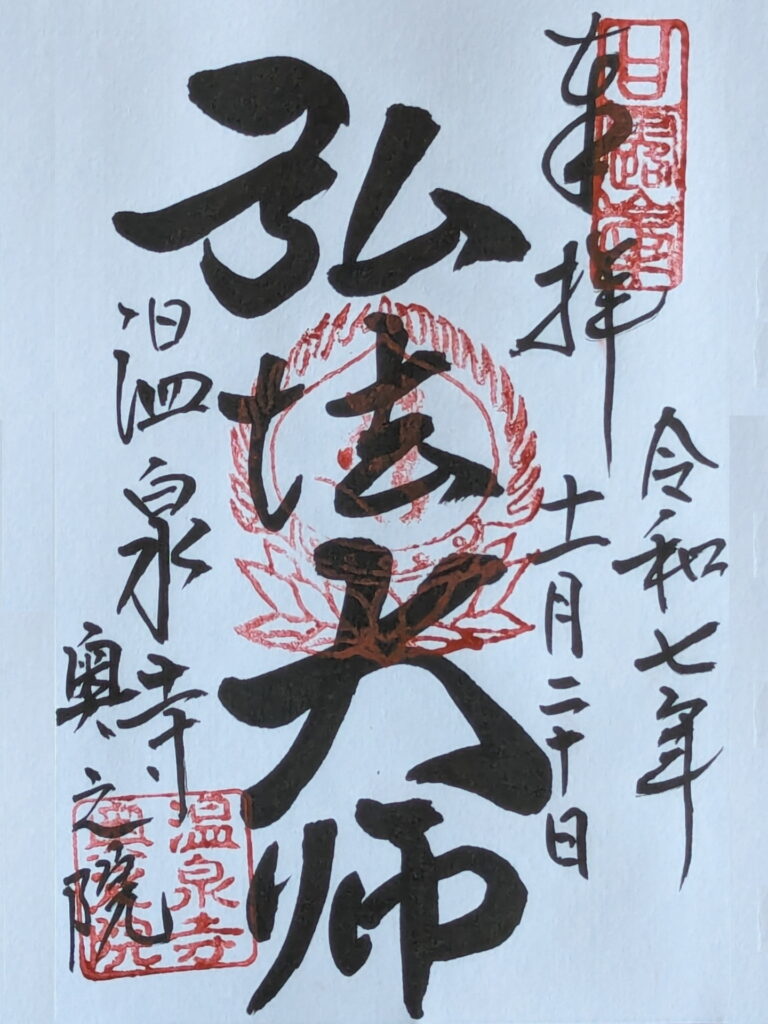 奉拝
令和七年
十一月二十日
弘法大师
温泉寺
奥之院
温泉寺
奥之院